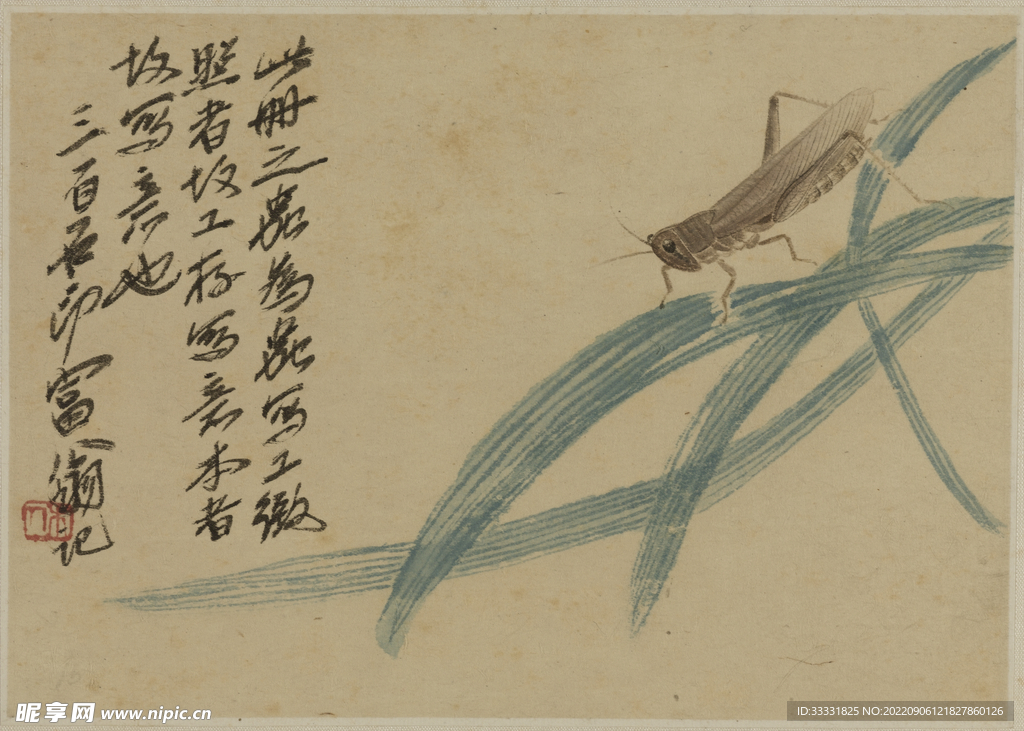 此冊之蟲為蟲寫工緻
照者故工存寫意本者
故寫意也
三百石印富翁記
木人
昵享网 www.nipic.cn
ID:33331825 NO:20220906121827860126